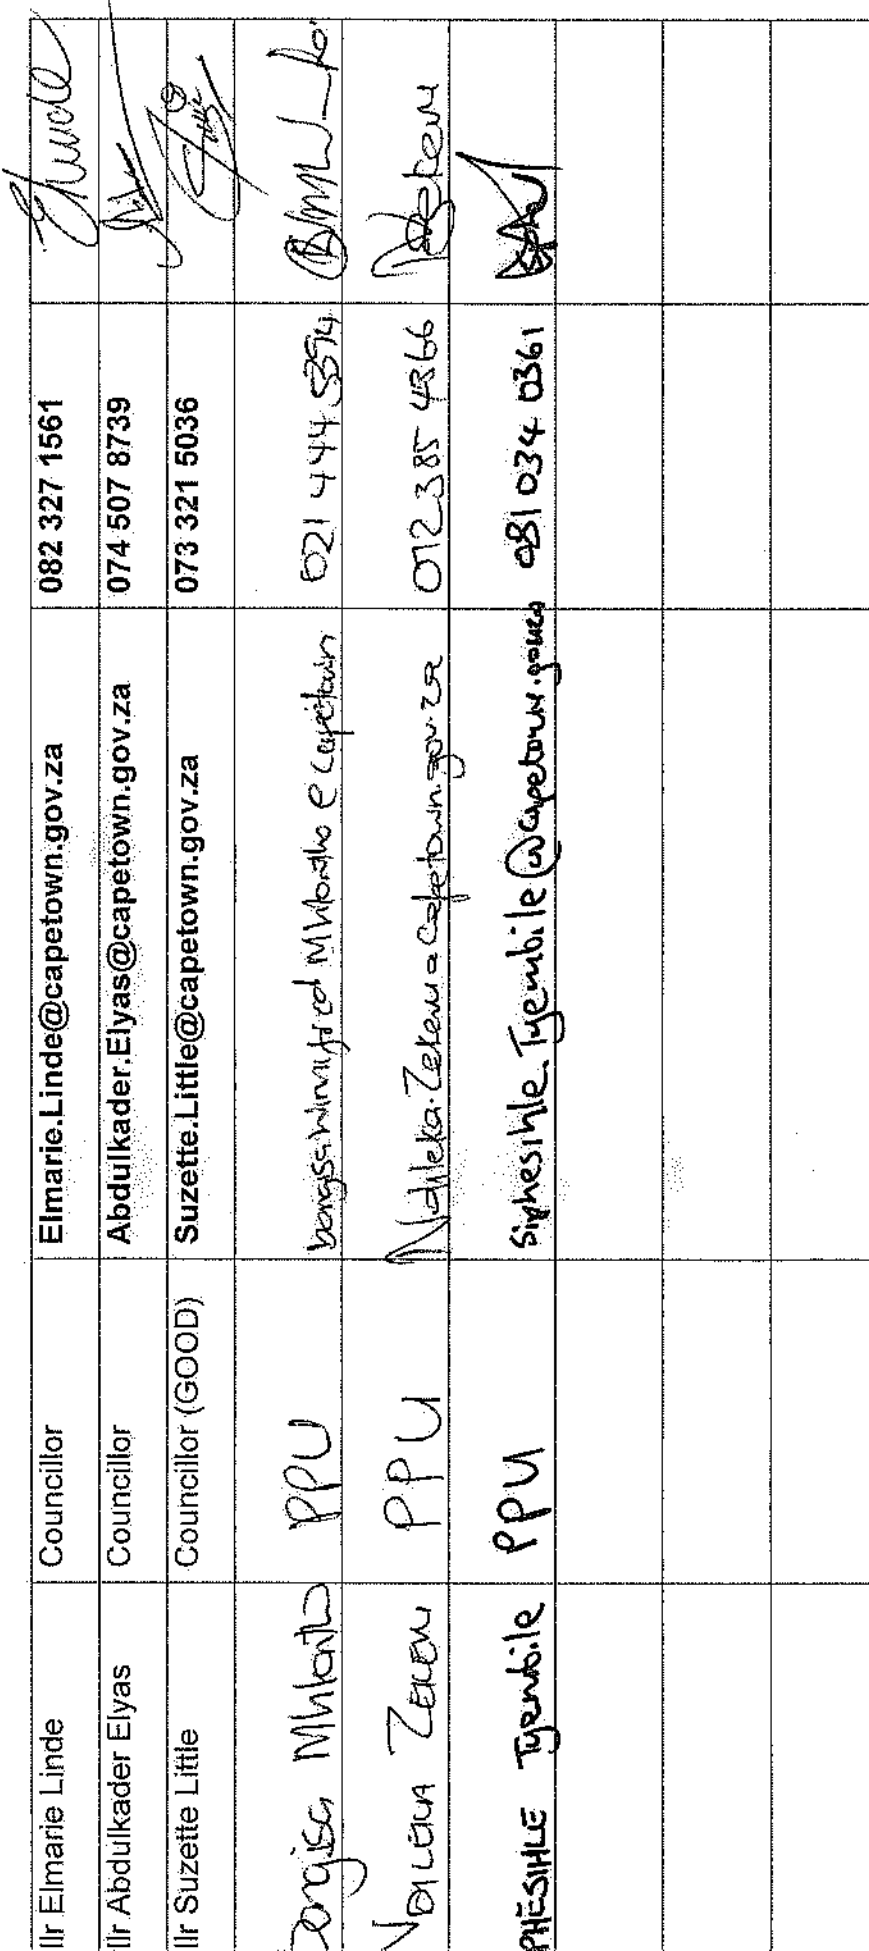 llr Elmarie Linde Councillor Elmarie.Linde@capetown.gov.za 082 327 1561
llr Abdulkader Elyas Councillor Abdulkader.Elyas@capetown.gov.za 074 507 8739
llr Suzette Little Councillor (GOOD) Suzette.Little@capetown.gov.za 073 321 5036
PPU 021 444 5894
Zekevu PPU Ndileka.Zekevu@capetown.gov.za 012 385 4366
PHESIHLE Tyembile PPU Siphesihle.Tyembile@capetown.gov.za 081 034 0361